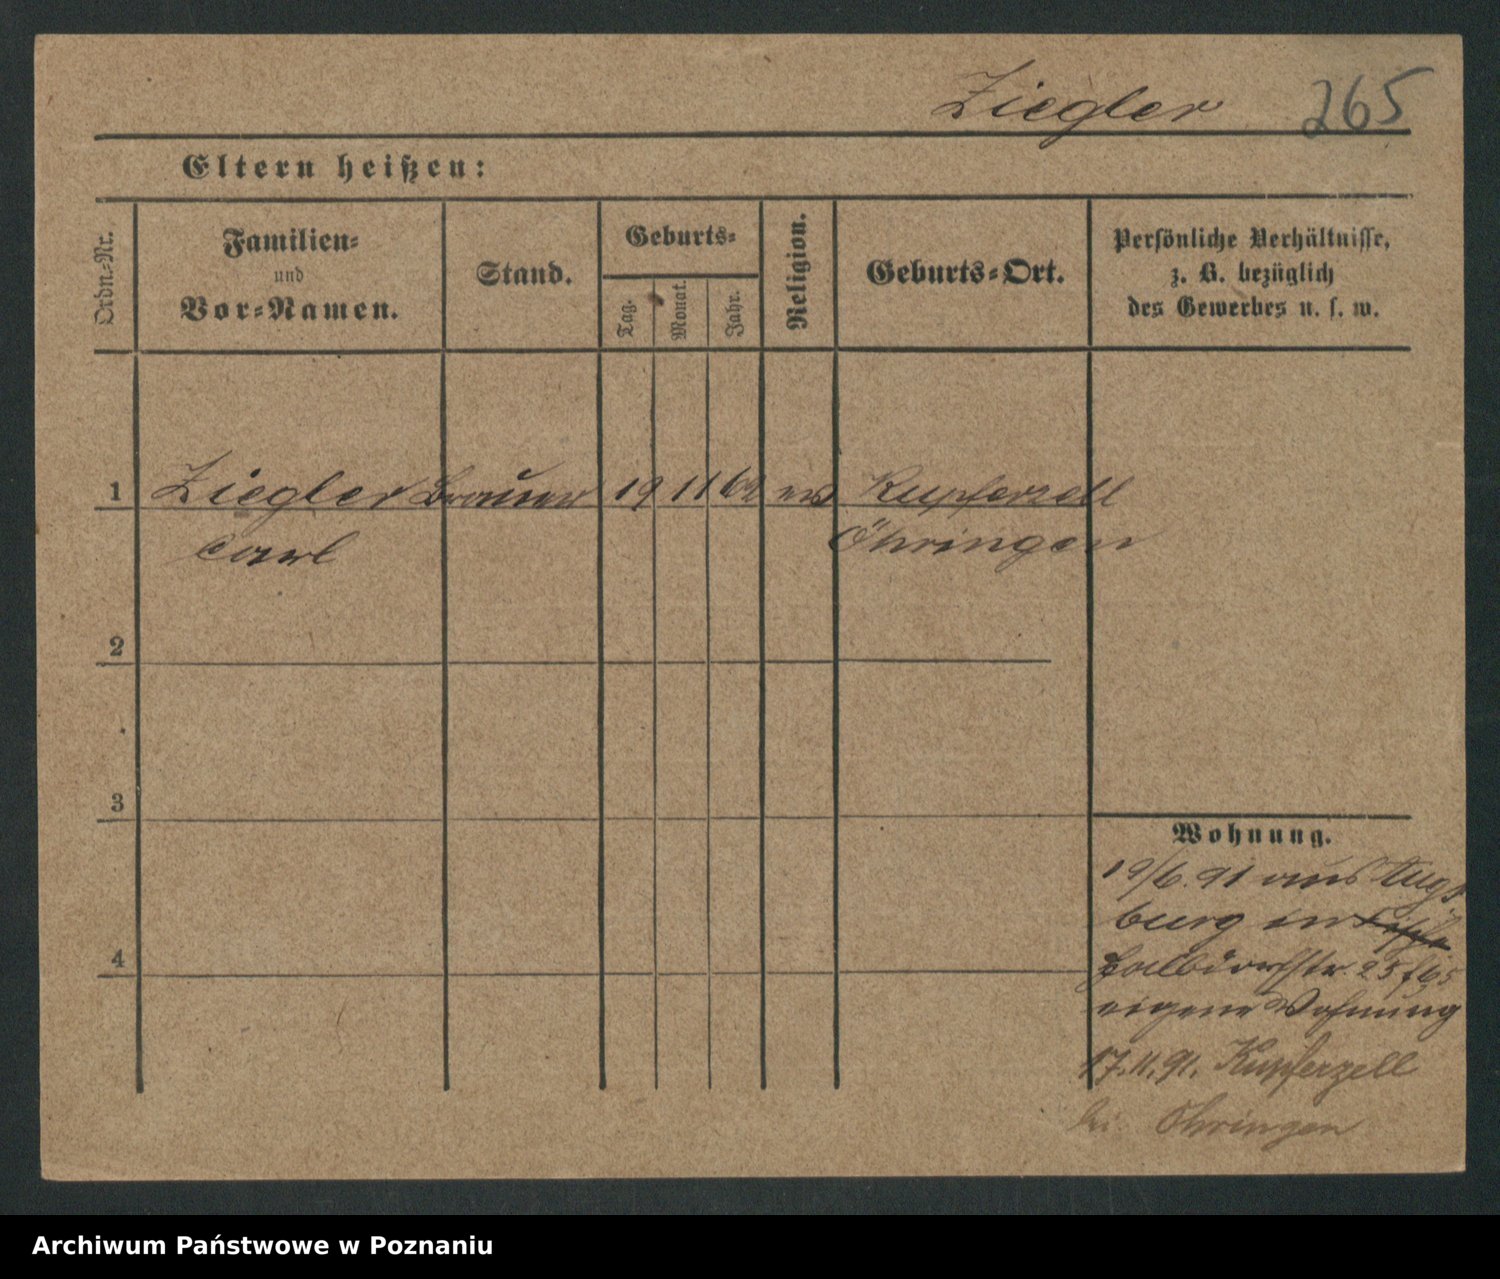 Ziegler 265
Eltern heißen:
Ordn.-Nr.
Familien-
und
Vor-Namen.
Stand.
Geburts-
Tag.
Monat.
Jahr.
Religion.
Geburts-Ort.
Persönliche Verhältnisse,
z. B. bezüglich
des Gewerbes u. s. w.
1 Ziegler Brauer 19 11 62 Kupferzell
Carl Öhringen
2
3
Wohnung.
19/6.91 aus Augs
burg in
4
25
eigene Wohnung
17.11.91. Kupferzell
bei Öhringen
Archiwum Państwowe w Poznaniu